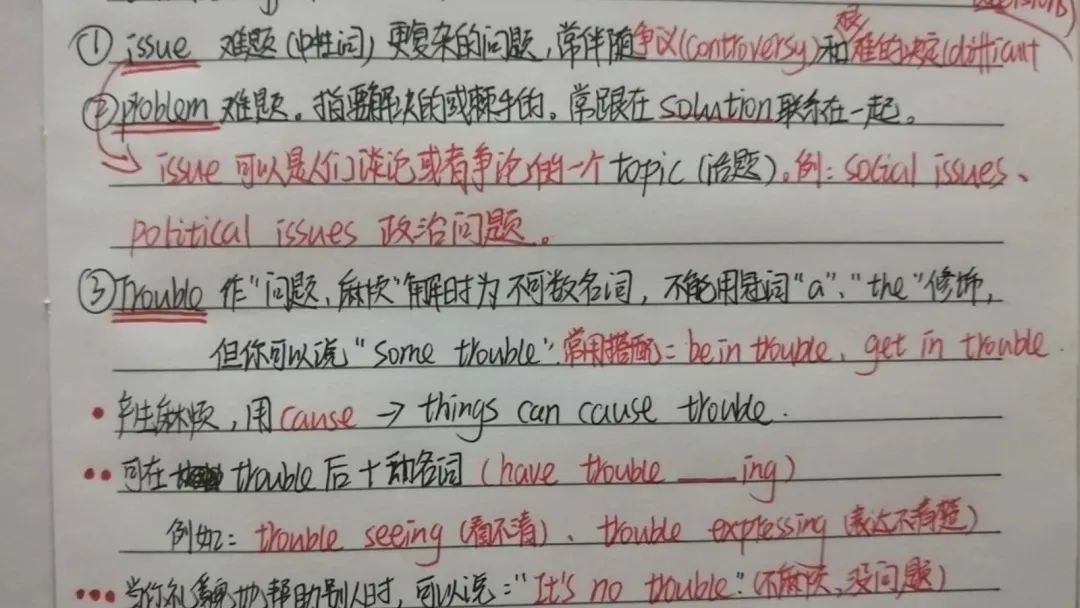 ① issue 难题(中性词) 更复杂的问题,常伴随争议(controversy)和很难的决定(difficult
② problem 难题。指要解决的或棘手的。常跟在 solution 联系在一起。
issue 可以是人们谈论或者争论的一个 topic (话题)。例: social issues、
political issues 政治问题。
③ Trouble 作"问题、麻烦"解时为不可数名词,不能用冠词"a"、"the"修饰,
但你可以说"some trouble". 常用搭配: be in trouble、get in trouble.
• 产生麻烦,用 cause → things can cause trouble.
•• 可在 trouble 后十动名词 (have trouble ___ing)
例如: trouble seeing (看不清)、trouble expressing (表达不清楚)
••• 当你礼貌地帮助别人时,可以说:"It's no trouble." (不麻烦、没问题)